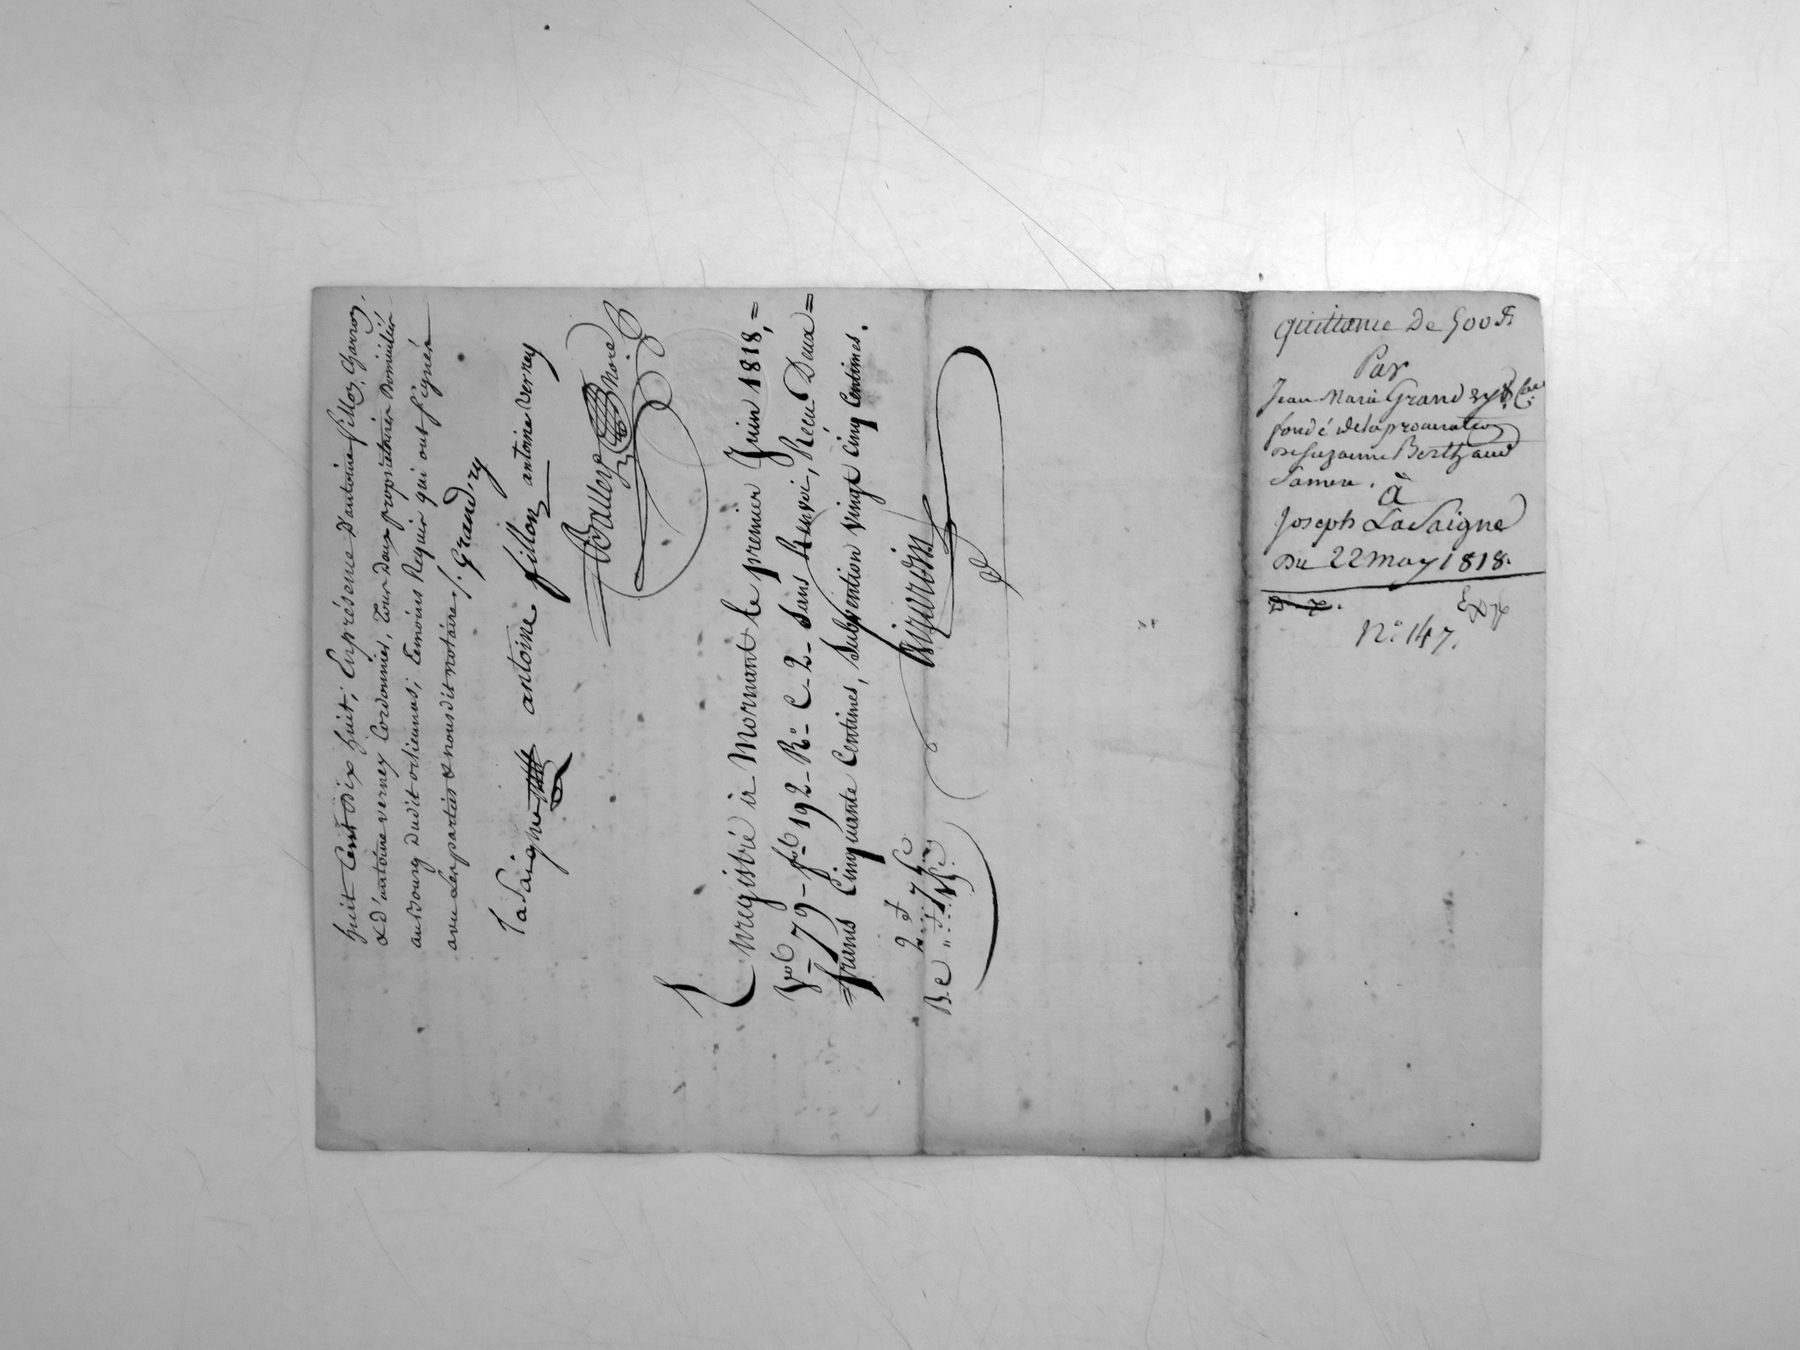 huit Cent Dix huit; En présence D'antoine fillon, Charron,
& d'antoine verney Cordonnier, tous Deux propriétaires Domiciliés
au Bourg dudit orliennas; Témoins Requis qui ont signés
avec Les parties & nous dit Notaire./. Grand'ry
LaSaigne antoine fillon antoine verney
Nore
Enregistré à Mornant le premier Juin 1818,=
Vol 79 - fol 192 - Ro - C - 2 - Sans Renvoi, Recu Deux=
=francs Cinquante Centimes, Subvention Vingt Cinq Centimes.
Quittance De 500 fr
Par
Jean Marie Grand'ry
fondé de la procuration
De Suzanne Berthaud
Sa mere.
à
Joseph LaSaigne
Du 22 may 1818.
Exp
No. 147.